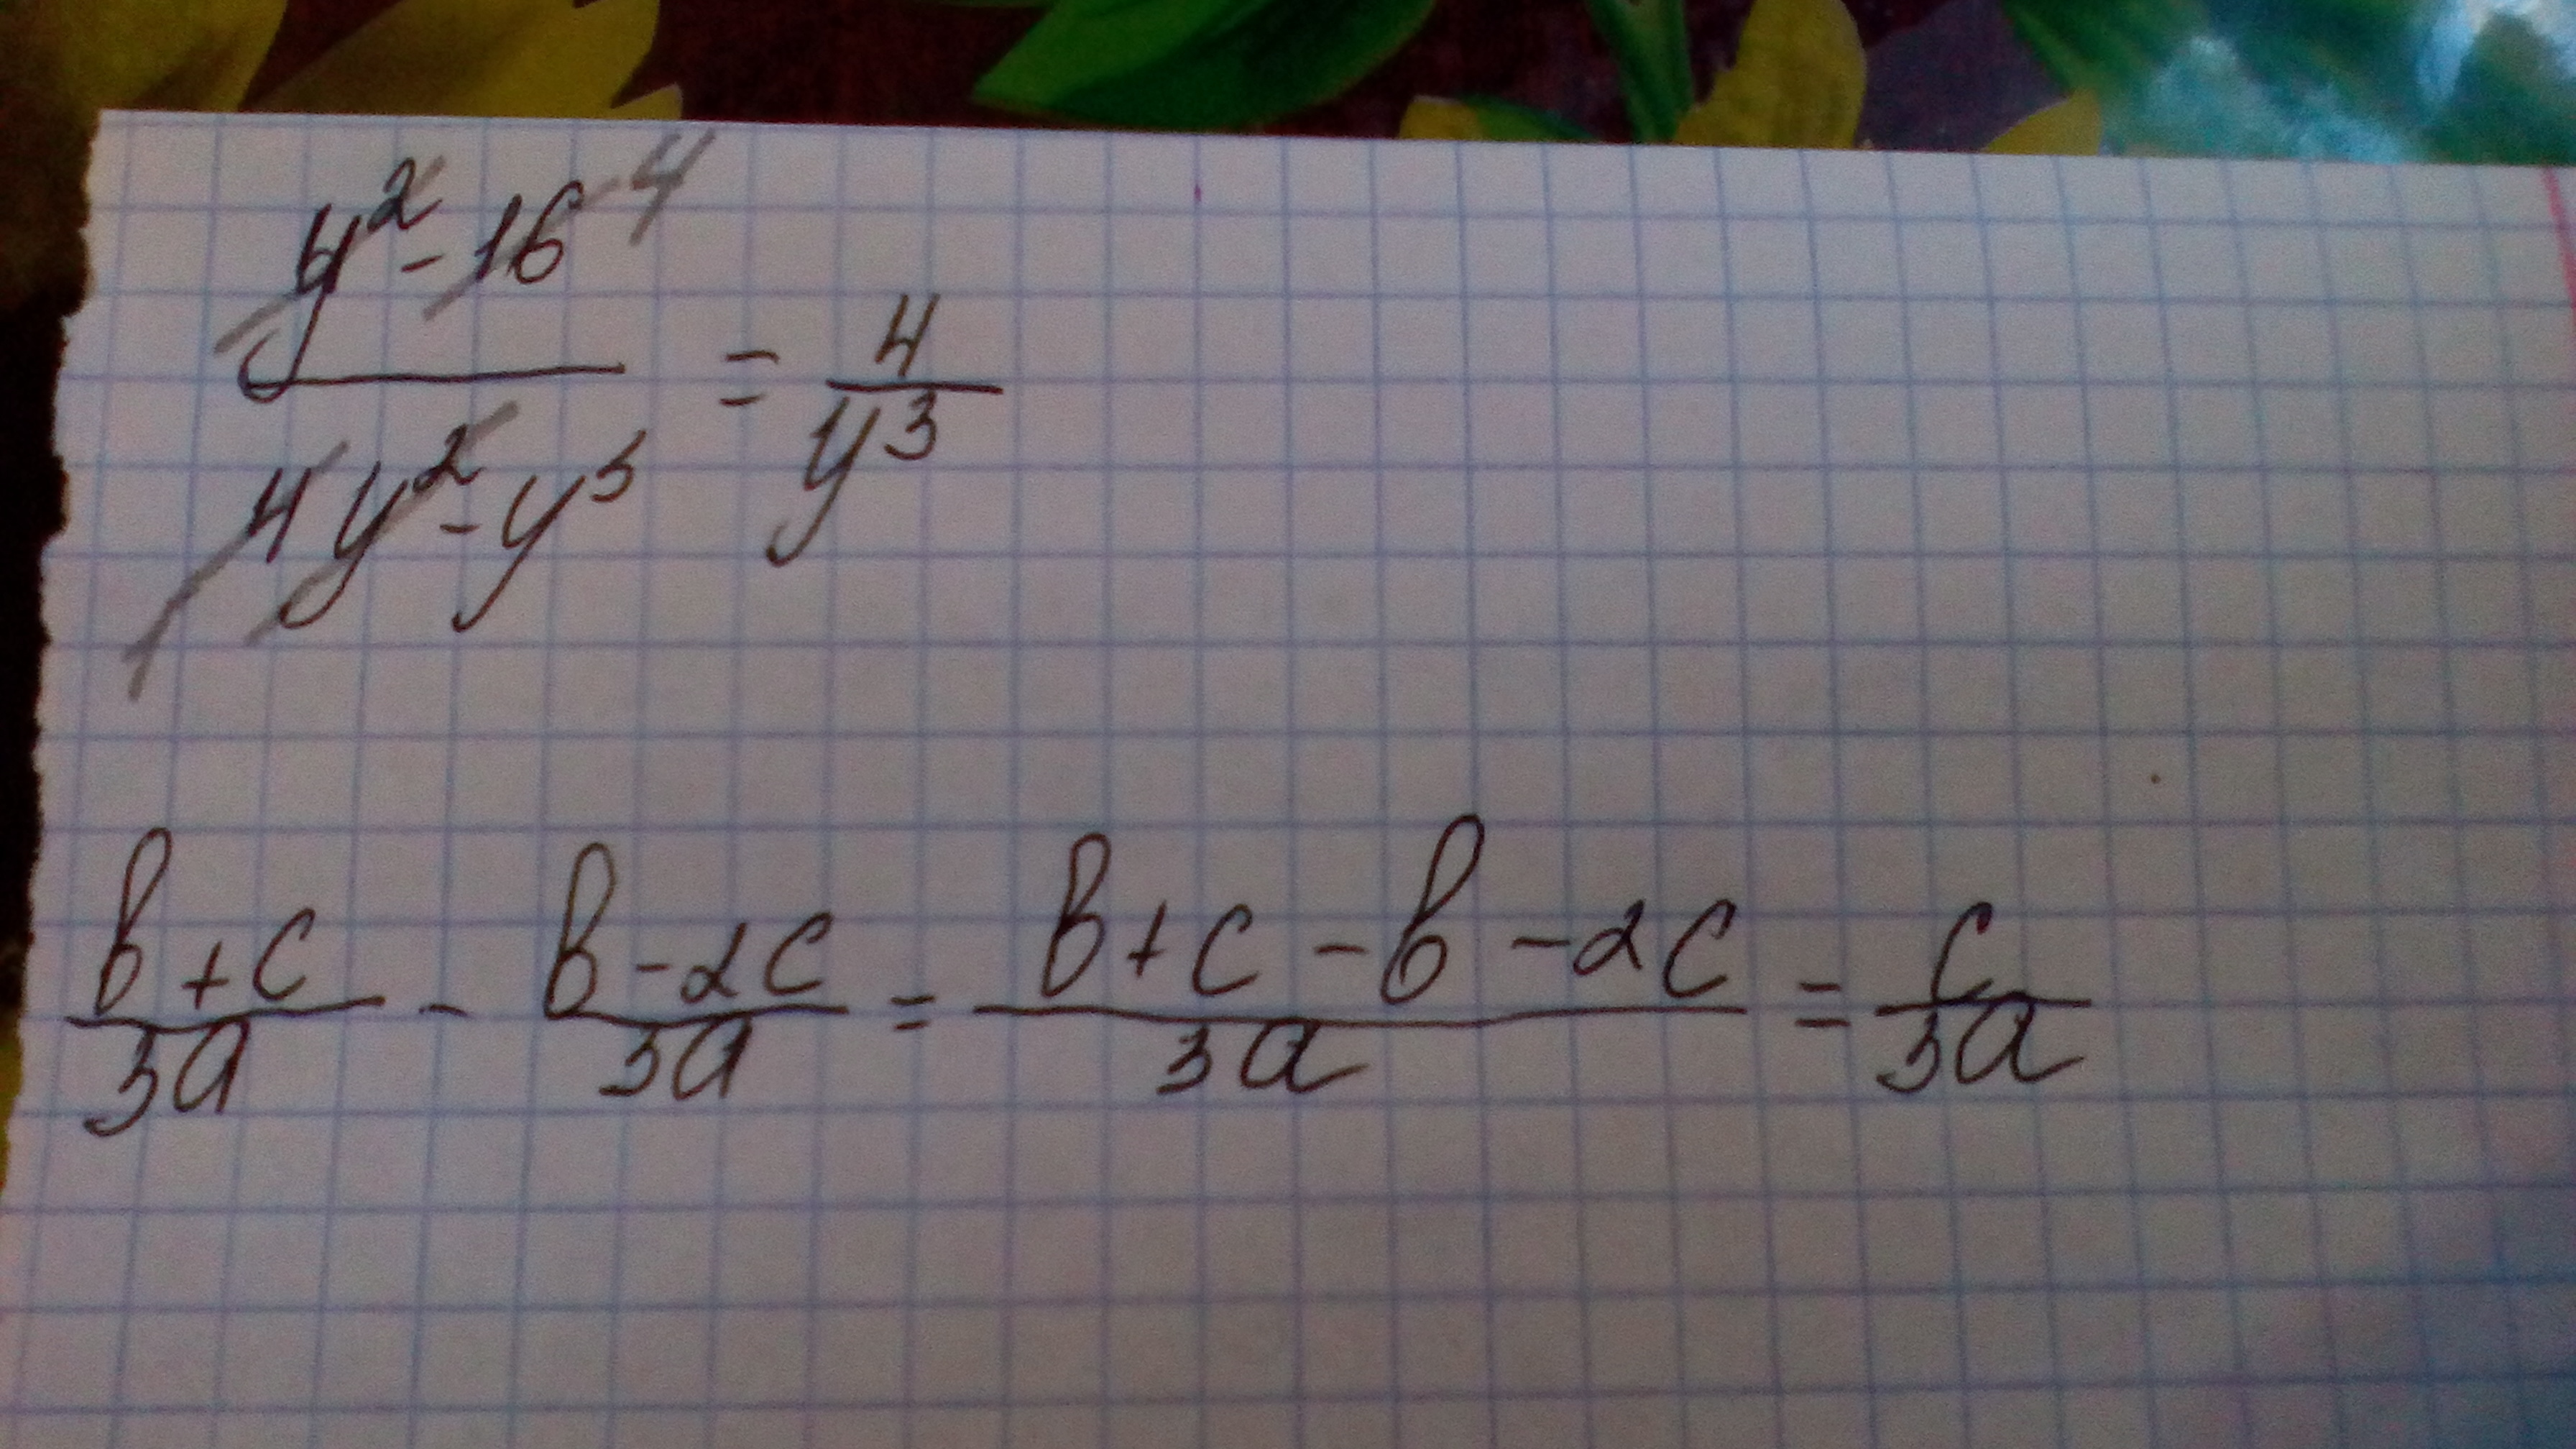 y² - 16 4
4y² - y³ = 4/y³
b + c / 3a - b - 2c / 3a = b + c - b - 2c / 3a = c / 3a